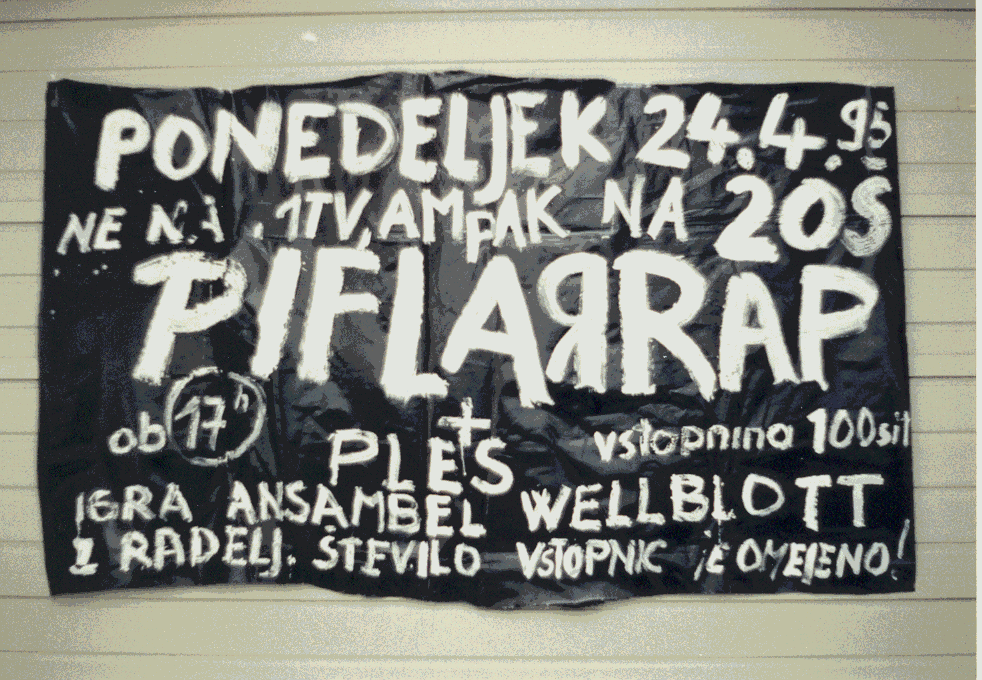 PONEDELJEK 24.4.95
NE NA 1TV, AMPAK NA 2OŠ
PIFLARRAP
ob 17h
+
PLES
vstopnina 100sit
IGRA ANSAMBEL WELLBLOTT
Z RADELJ. ŠTEVILO VSTOPNIC JE OMEJENO!